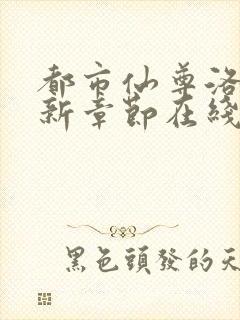 都市仙尊洛
新章節在綫
黑色頭發的天